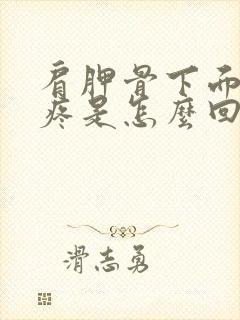 肩胛骨下面
疼是怎麼回
滑志勇